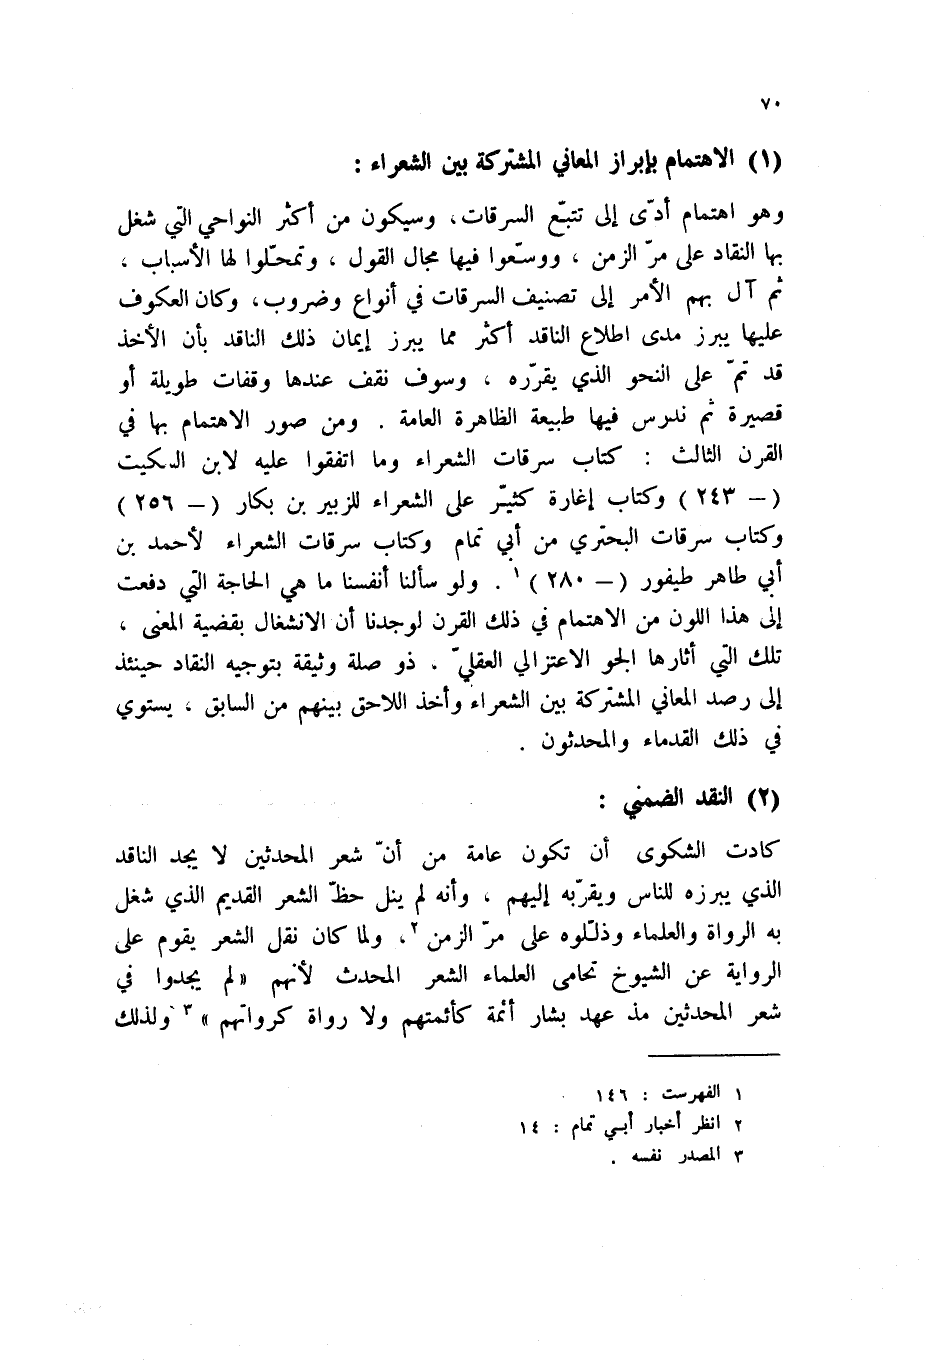 ٧٠
(١) الاهتمام بإبراز المعاني المشتركة بين الشعراء :
وهو اهتمام أدّى إلى تتبّع السرقات، وسيكون من أكثر النواحي التي شغل
بها النقاد على مرّ الزمن ، ووسّعوا فيها مجال القول ، وتمحّلوا لها الأسباب ،
ثم آل بهم الأمر إلى تصنيف السرقات في أنواع وضروب، وكان العكوف
عليها يبرز مدى اطلاع الناقد أكثر مما يبرز إيمان ذلك الناقد بأن الأخذ
قد تمّ على النحو الذي يقرّره ، وسوف نقف عندها وقفات طويلة أو
قصيرة ثم ندرس فيها طبيعة الظاهرة العامة . ومن صور الاهتمام بها في
القرن الثالث : كتاب سرقات الشعراء وما اتفقوا عليه لابن السكيت
(ـ ٢٤٣) وكتاب إغارة كثيّر على الشعراء للزبير بن بكار (ـ ٢٥٦)
وكتاب سرقات البحتري من أبي تمام وكتاب سرقات الشعراء لأحمد بن
أبي طاهر طيفور (ـ ٢٨٠) ١ . ولو سألنا أنفسنا ما هي الحاجة التي دفعت
إلى هذا اللون من الاهتمام في ذلك القرن لوجدنا أن الانشغال بقضية المعنى ،
تلك التي أثارها الجو الاعتزالي العقليّ . ذو صلة وثيقة بتوجيه النقاد حينئذ
إلى رصد المعاني المشتركة بين الشعراء وأخذ اللاحق بينهم من السابق ، يستوي
في ذلك القدماء والمحدثون .
(٢) النقد الضمني :
كادت الشكوى أن تكون عامة من أنّ شعر المحدثين لا يجد الناقد
الذي يبرزه للناس ويقرّبه إليهم ، وأنه لم ينل حظّ الشعر القديم الذي شغل
به الرواة والعلماء وذلّلوه على مرّ الزمن ٢، ولما كان نقل الشعر يقوم على
الرواية عن الشيوخ تحامى العلماء الشعر المحدث لأنهم «لم يجدوا في
شعر المحدثين مذ عهد بشار أئمة كأئمتهم ولا رواة كرواتهم» ٣ ولذلك
١ الفهرست : ١٤٦
٢ انظر أخبار أبي تمام : ١٤
٣ المصدر نفسه .